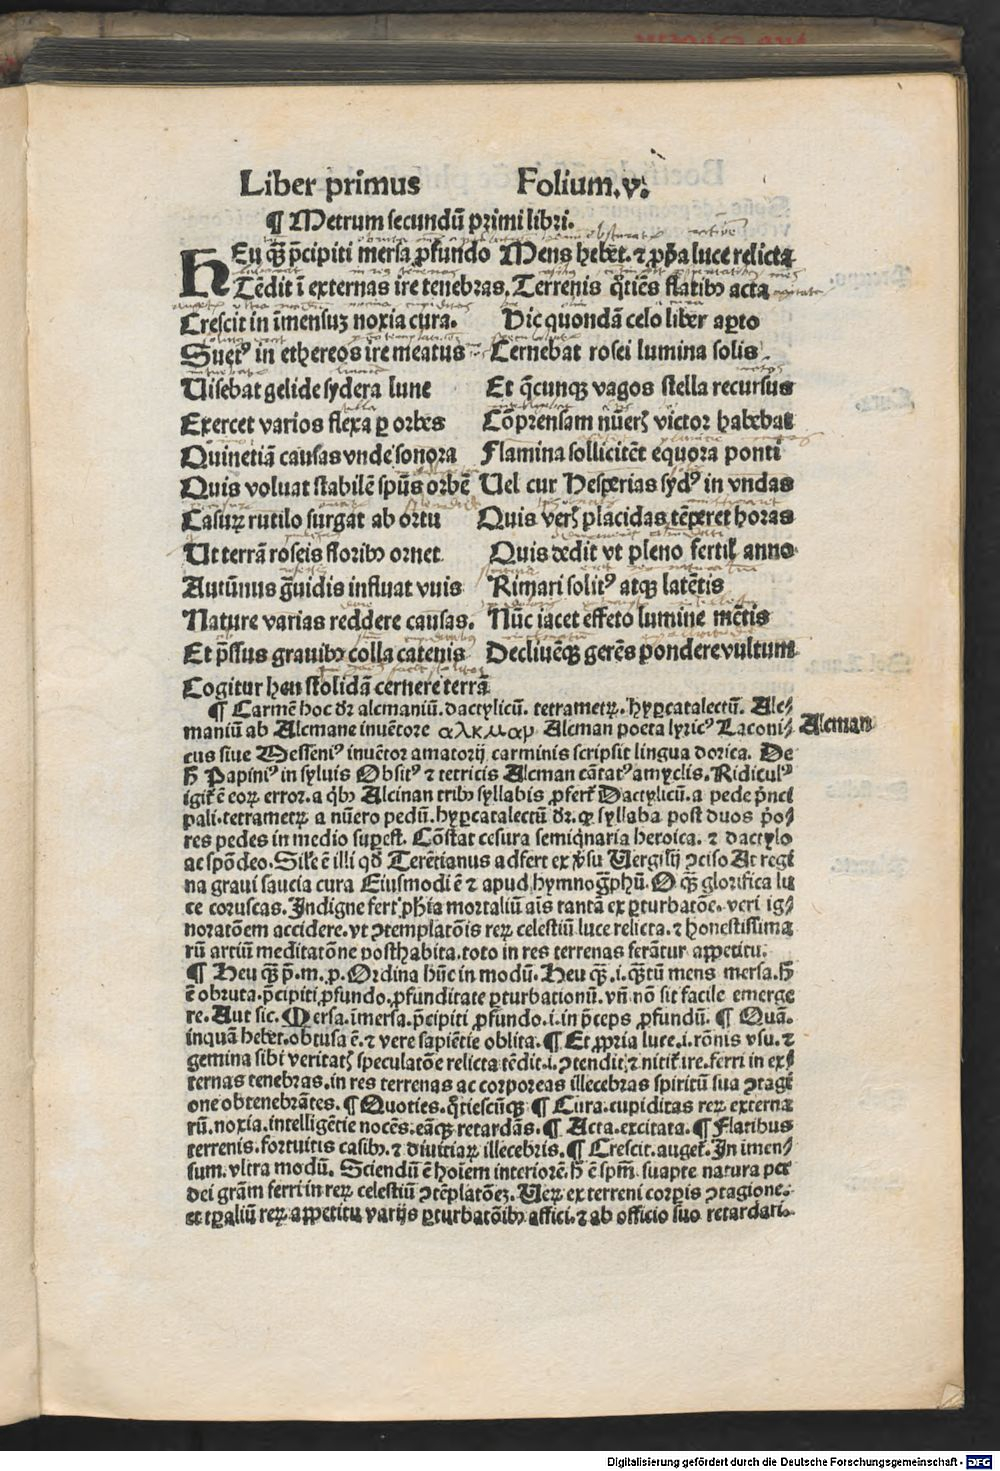 Liber primus Folium.v.
¶ Metrum secundũ primi libri.
HEu q̃ꝫ p̃cipiti mersa ꝓfundo Mens hebet. ⁊ ꝓp̃a luce relicta
Tẽdit ĩ externas ire tenebras, Terrenis q̃tiẽs flatibꝰ acta
Crescit in ĩmensuꝫ noxia cura. Hic quondã celo liber aꝑto
Suetꝰ in ethereos ire meatus Cernebat rosei lumina solis.
Uisebat gelide sydera lune Et q̃cunqꝫ vagos stella recursus
Exercet varios flexa ꝑ orbes Cõprensam nũerꝭ victor habebat
Quinetiã causas vnde sonora Flamina sollicitẽt equora ponti
Quis voluat stabilẽ spũs orbẽ Uel cur Hesperias sydꝰ in vndas
Casuꝝ rutilo surgat ab ortu Quis verꝭ placidas tẽperet horas
Ut terrã roseis floribꝰ ornet Quis dedit vt pleno fertil̛ anno
Autũnus g̃uidis influat vuis Rimari solitꝰ atqꝫ latẽtis
Nature varias reddere causas. Nũc iacet effeto lumine mẽtis
Et p̃ssus grauibꝰ colla catenis Decliuẽqꝫ gerẽs pondere vultum
Cogitur heu stolidã cernere terrã
¶ Carmẽ hoc dꝛ alcmaniũ. dactylicũ. tetrametꝝ. hyꝑcatalectũ. Alc⸗
maniũ ab Alcmane inuẽtore αλκμαρ Alcman poeta lyricꝰ Laconi⸗ Alcman
cus siue Messeniꝰ inuẽtor amatorij carminis scripsit lingua dorica. De
h̃ Papiniꝰ in syluis Obsitꝰ ⁊ tetricis Alcman cãtatꝰ amyclis. Ridiculꝰ
igit̃ ẽ eoꝝ error. a q̃bꝰ Alcinan tribꝰ syllabis ꝓfert̃ Dactylicũ. a pede p̃nci
pali. tetrametꝝ a nũero pedũ. hyꝑcatalectũ dꝛ. qꝛ syllaba post duos p̃o⸗
res pedes in medio suꝑest. Cõstat cesura semiq̃naria heroica. ⁊ dactylo
ac spõdeo. Sil̛e ẽ illi qd̃ Terẽtianus adfert ex ṽsu Uergilij ꝯciso At regi
na graui saucia cura Eiusmodi ẽ ⁊ apud hymnog̃phũ. O q̃ꝫ glorifica lu
ce coruscas. Indigne fert p̃hĩa mortaliũ aĩs tantã ex ꝑturbatõe. veri ig⸗
noratõem accidere. vt ꝯtemplatõis reꝝ celestiũ luce relicta. ⁊ honestissimã
rũ artiũ meditatõne posthabita. toto in res terrenas ferãtur apꝑetitu.
¶ Heu q̃ꝫ p̃. m. p. Ordina hũc in modũ. Heu q̃ꝫ. i. q̃tũ mens mersa. h̃
ẽ obruta. p̃cipiti ꝓfundo. ꝓfunditate ꝑturbationũ. vñ nõ sit facile emerge
re. Aut sic. Mersa. ĩmersa. p̃cipiti ꝓfundo. i. in p̃ceps ꝓfundũ. ¶ Quã.
inquã hebet. obtusa ẽ. ⁊ vere sapiẽtie oblita. ¶ Et ꝓpria luce. i. rõnis vsu. ⁊
gemina sibi veritatꝭ speculatõe relicta tẽdit. i. ꝯtendit. ⁊ nitit̃ ire. ferri in ex⸗
ternas tenebras. in res terrenas ac corporeas illecebras spiritũ sua ꝯtagi
one obtenebrãtes. ¶ Quoties. q̃tiescũqꝫ ¶ Cura. cupiditas reꝝ externa
rũ. noxia. intelligẽtie nocẽs. eãqꝫ retardãs. ¶ Acta. excitata. ¶ Flatibus
terrenis. fortuitis casibꝰ. ⁊ diuitiaꝝ illecebris. ¶ Crescit. auget̃. In imen⸗
sum. vltra modũ. Sciendũ ẽ hoĩem interiorẽ. h̃ ẽ spm̃. suapte natura per
dei grãm ferri in reꝝ celestiũ ꝯtẽplatõeꝫ. Ueꝝ ex terreni corꝑis ꝯtagione.
et tꝑaliũ reꝝ apꝑetitu varijs ꝑturbatõibꝰ affici. ⁊ ab officio suo retardari.
Digitalisierung gefördert durch die Deutsche Forschungsgemeinschaft - DFG